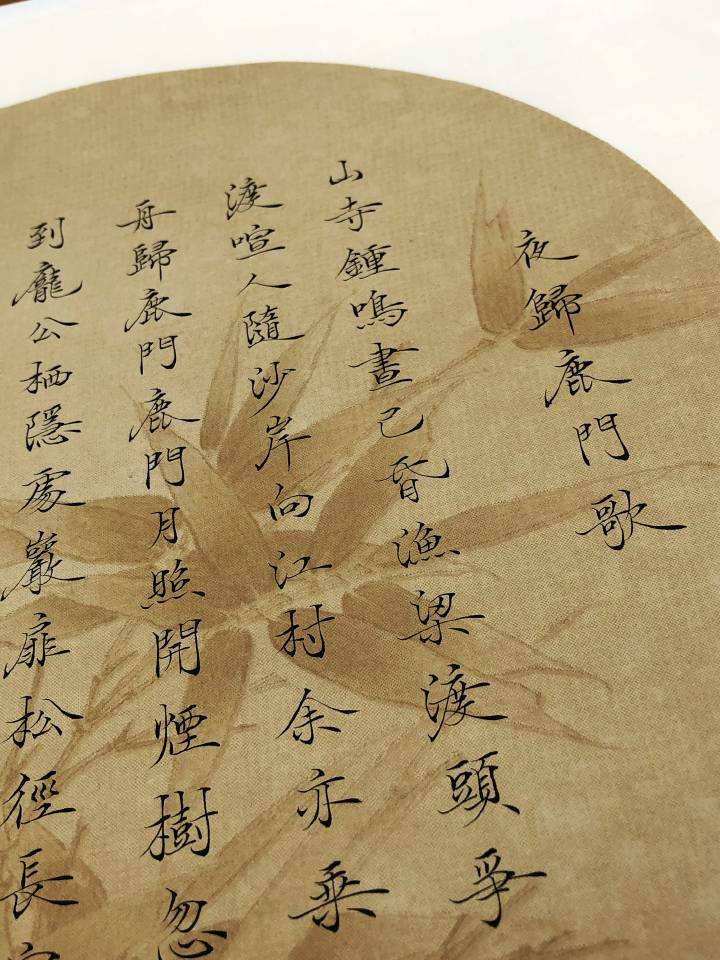 夜歸鹿門歌
山寺鍾鳴晝已昏漁梁渡頭爭
渡喧人隨沙岸向江村余亦乘
舟歸鹿門鹿門月照開煙樹忽
到龐公栖隱處巖扉松徑長